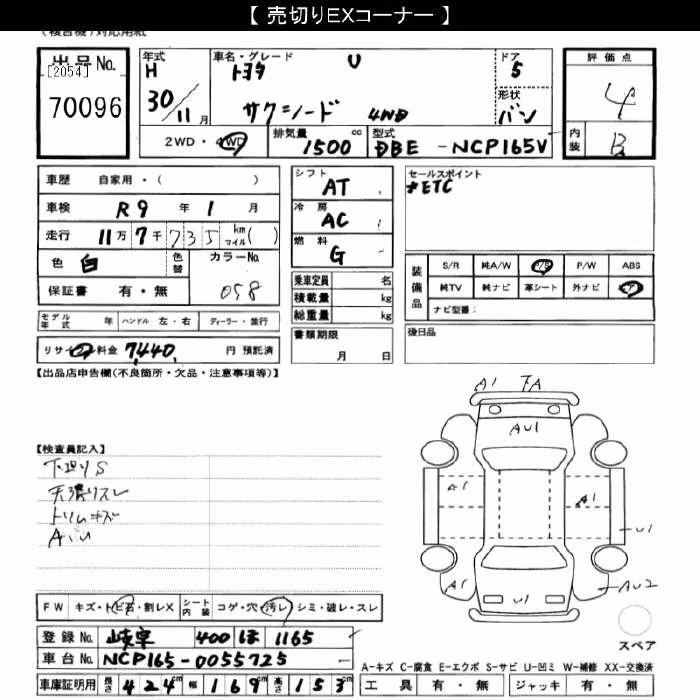 【 売切りEXコーナー 】
(複合機)対応用紙
出品No. [2054] 70096
年式 H 30/11月
車名・グレード トヨタ U サクシード 4WD
ドア 5
形状 バン
評価点 4
内装 B
2WD・4WD
排気量 1500 cc
型式 DBE -NCP165V
車歴 自家用・( )
車検 R9年 1月
走行 11万7千735 km マイル( )
色 白 色替 カラーNo. 058
保証書 有・無
モデル年式 年 ハンドル 左・右 ディーラー・並行
リサイクル料金 7440 円 預託済
シフト AT
冷房 AC
燃料 G
乗車定員 名
積載量 kg
総重量 kg
書類期限 月 日
セールスポイント
#ETC
装備品 S/R 純A/W P/S P/W ABS
純TV 純ナビ 革シート 外ナビ エア
ナビ型番:
後日品
【出品店申告欄(不良箇所・欠品・注意事項等)】
【検査員記入】
下廻りS
天張リスレ
トリムキズ
A
A1 FA
AU1
A1
A1
U1
A1
U1
AU2
スペア
FW キズ・トビ石・割レX シート内装 コゲ・穴・汚レ・シミ・破レ・スレ
登録No. 岐阜 400 ほ 1165
車台No. NCP165-0055725
車庫証明用 長さ 424cm 幅 169cm 高さ 153cm
A-キズ C-腐食 E-エクボ S-サビ U-凹ミ W-補修 XX-交換済
工具 有・無 ジャッキ 有・無